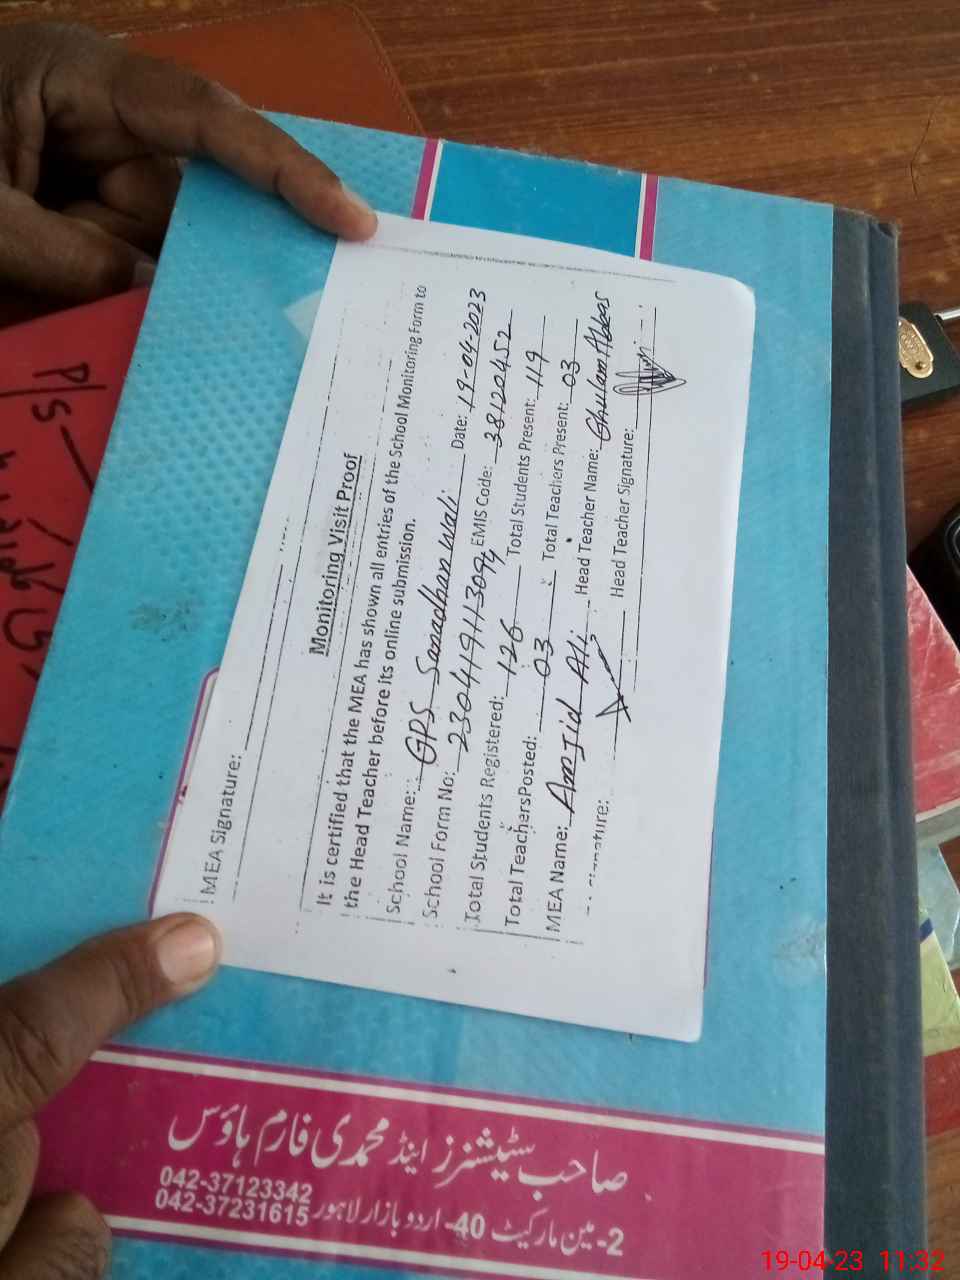 MEA Signature:
Monitoring Visit Proof
It is certified that the MEA has shown all entries of the School Monitoring Form to
the Head Teacher before its online submission.
School Name: GPS Sanadhan Wali Date: 19-04-2023
School Form No: 2304191113094 EMIS Code: 38120452
Total Students Registered: 126 Total Students Present: 119
Total TeachersPosted: 03 Total Teachers Present: 03
MEA Name: Amjid Ali Head Teacher Name: Ghulam Abbas
Signature: Head Teacher Signature:
P/S
صاحب سٹیشنرز اینڈ محمدی فارم ہاؤس
042-37123342
042-37231615
2-مین مارکیٹ 40-اردو بازار لاہور
19-04-23 11:32